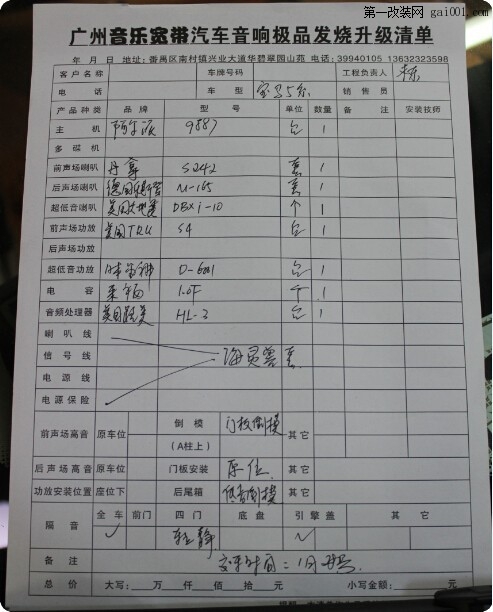 第一改装网 gai001.com
广州音乐宽带汽车音响极品发烧升级清单
年 月 日 地址: 番禺区南村镇兴业大道华碧翠园山苑 电话: 39940105 13632323598
客户名称 车牌号码 工程负责人
电话 车型 宝马5系 销售员
产品种类 品牌 型号 单位 数量 备注 安装技师
主机 阿尔派 9887 台 1
多碟机
前声场喇叭 丹拿 S242 套 1
后声场喇叭 M-165 套 1
超低音喇叭 DBXi-10 个 1
前声场功放 美国TRU S4 台 1
后声场功放
超低音功放 D-6001 台 1
电容 来福 1.0F 个 1
音频处理器 HL-3 台 1
喇叭线
信号线
电源线
电源保险
前声场高音 原车位 倒模 (A柱上) 门板倒模 其它
后声场高音 原车位 门板安装 原位 其它
功放安装位置 座位下 后尾箱 低音倒模 其它
隔音 全车 前门 四门 底盘 引擎盖 其它
备注
总价 大写: 万 仟 佰 拾 元 小写金额: 元